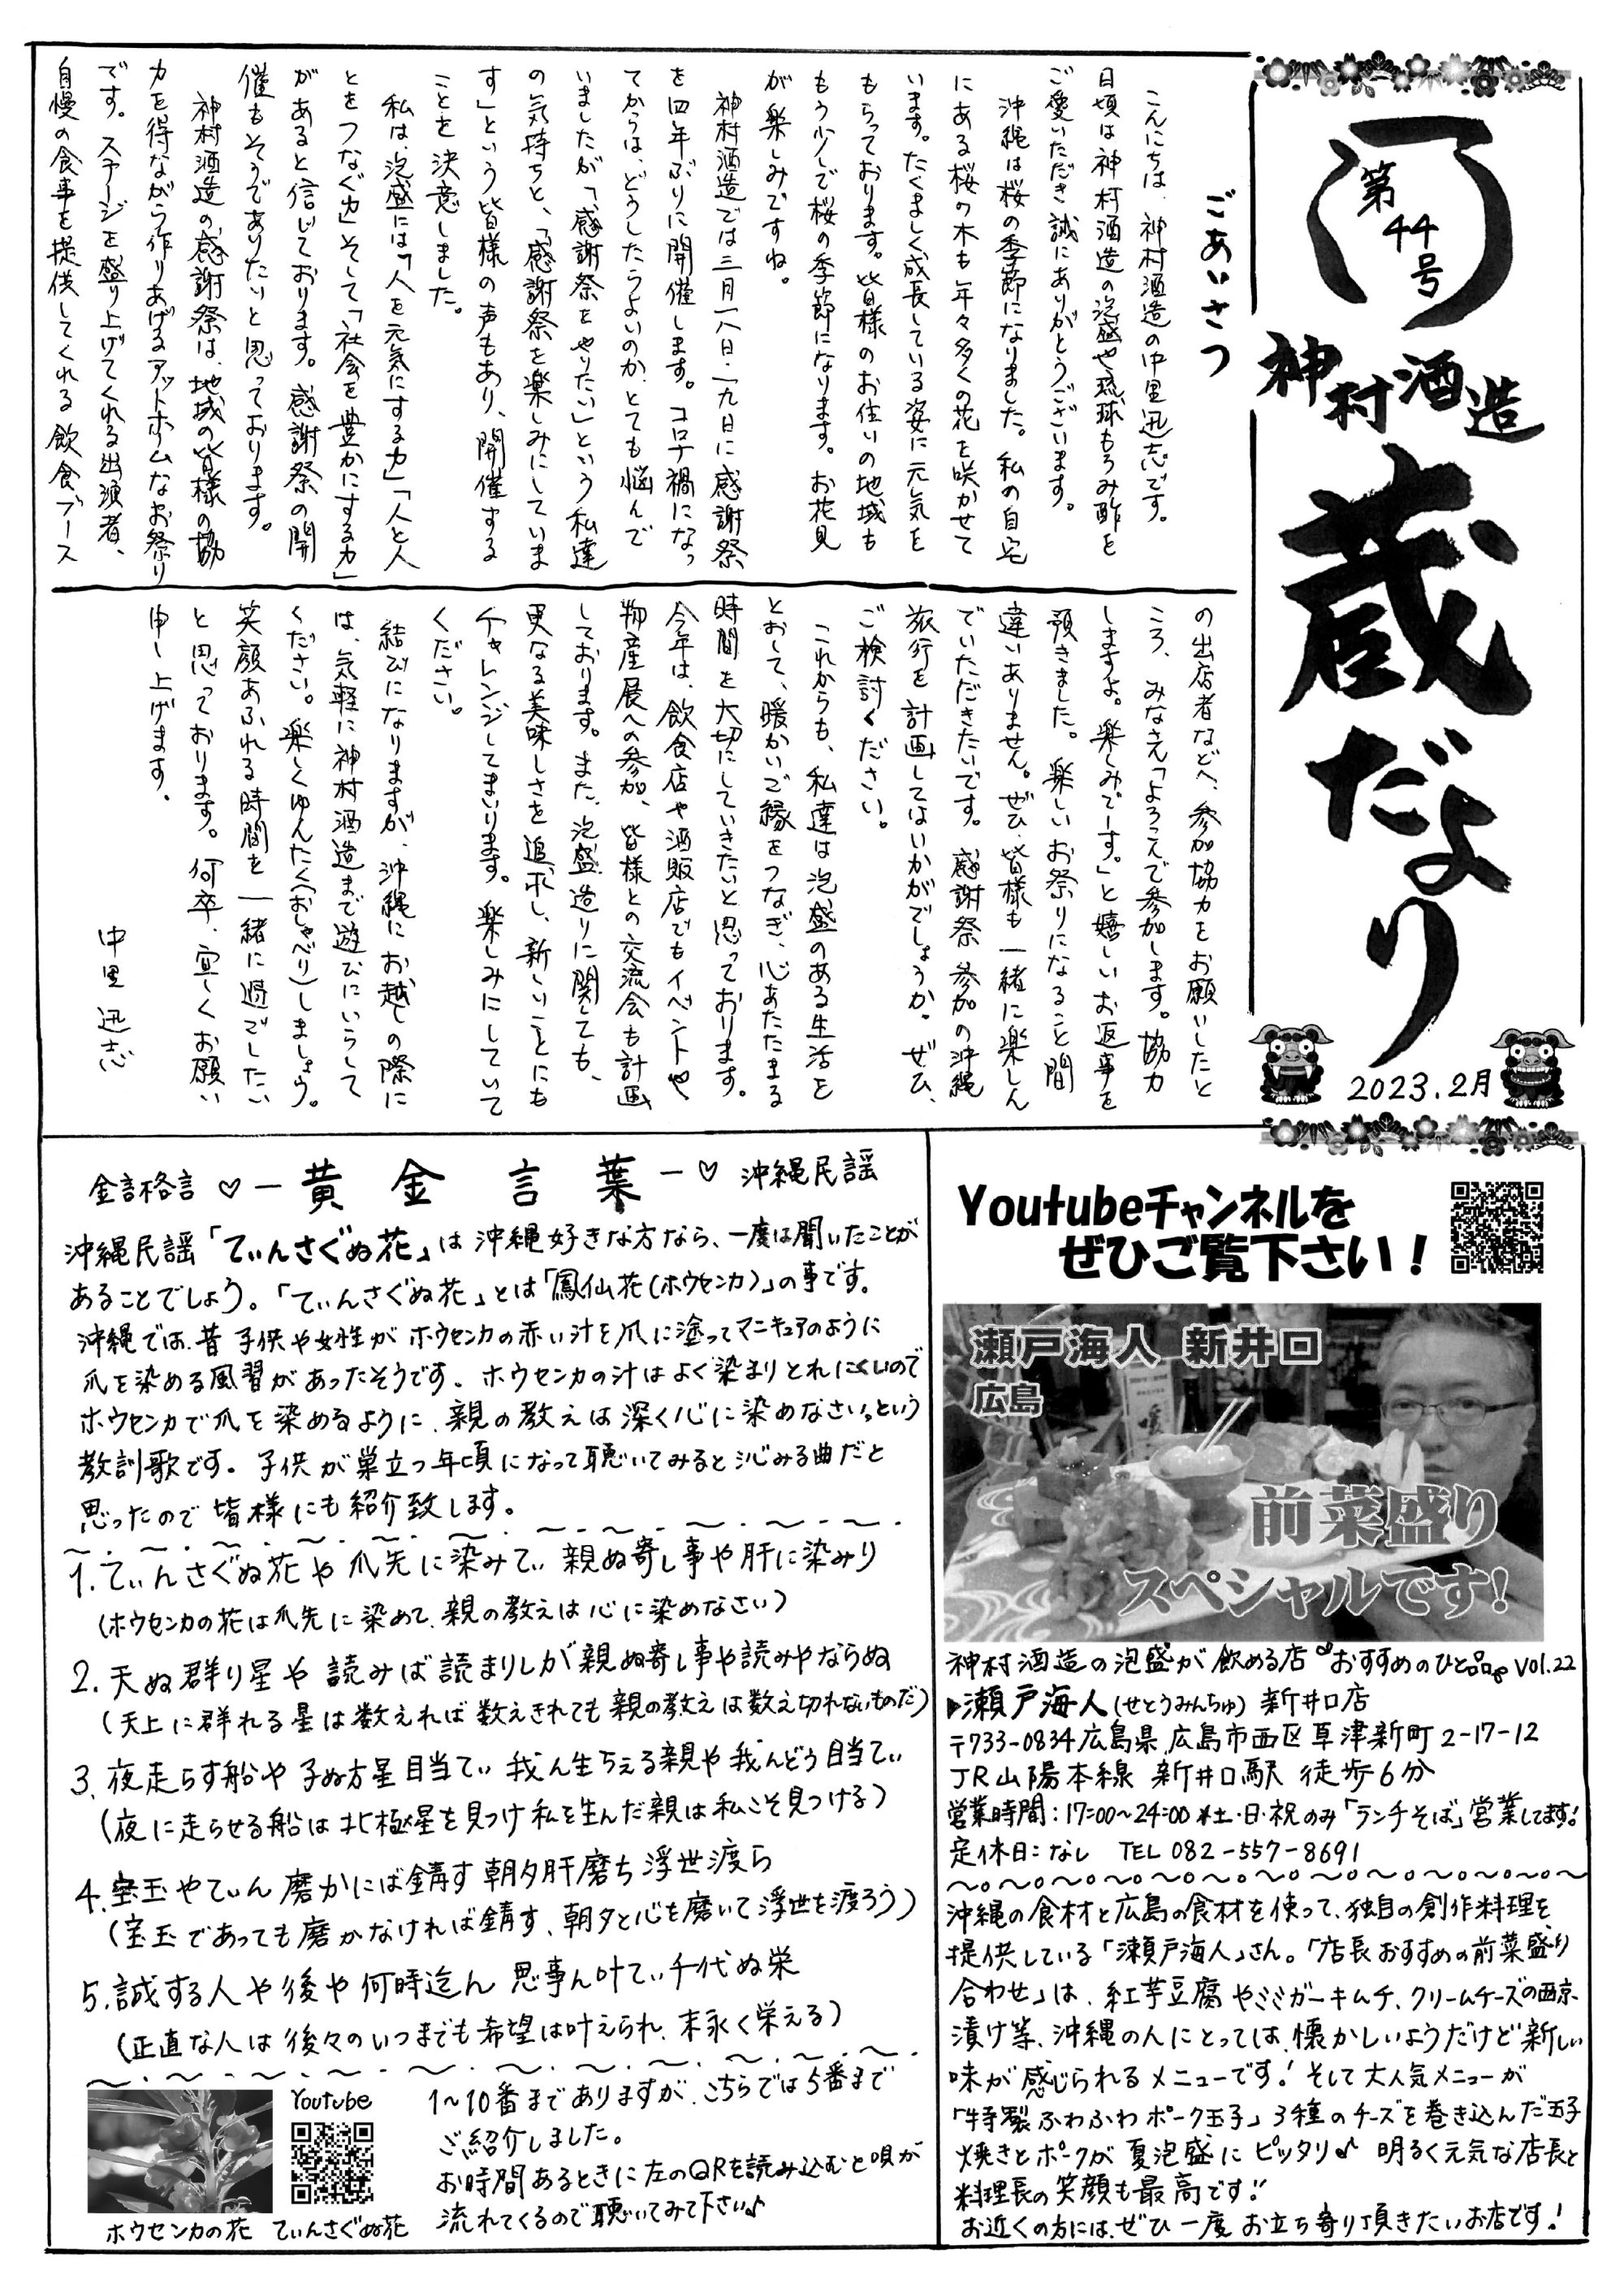 第44号
神村酒造
蔵だより
2023.2月
ごあいさつ
こんにちは、神村酒造の中里迅志です。
日頃は神村酒造の泡盛や琉球もろみ酢を
ご愛いただき誠にありがとうございます。
沖縄は桜の季節になりました。私の自宅
にある桜の木も年々多くの花を咲かせて
います。たくましく成長している姿に元気を
もらっております。皆様のお住いの地域も
もう少しで桜の季節になります。お花見
が楽しみですね。
神村酒造では三月一八日・一九日に感謝祭
を四年ぶりに開催します。コロナ禍になっ
てからは、どうしたらよいのか、とても悩んで
いましたが「感謝祭をやりたい」という私達
の気持ちと、「感謝祭を楽しみにしていま
す」という皆様の声もあり、開催する
ことを決意しました。
私は、泡盛には「人を元気にする力」「人と人
とをつなぐ力」そして「社会を豊かにする力」
があると信じております。感謝祭の開
催もそうでありたいと思っております。
神村酒造の感謝祭は、地域の皆様の協
力を得ながら作りあげるアットホームなお祭り
です。ステージを盛り上げてくれる出演者、
自慢の食事を提供してくれる飲食ブース
の出店者などへ、参加協力をお願いしたと
ころ、みなさん「よろこんで参加します。協力
しますよ。楽しみでーす。」と嬉しいお返事を
預きました。楽しいお祭りになること間
違いありません。ぜひ、皆様も一緒に楽しん
でいただきたいです。感謝祭参加の沖縄
旅行を計画してはいかがでしょうか。ぜひ、
ご検討ください。
これからも、私達は泡盛のある生活を
とおして、暖かいご縁をつなぎ、心あたたまる
時間を大切にしていきたいと思っております。
今年は、飲食店や酒販店でもイベントや
物産展への参加、皆様との交流会も計画
しております。また、泡盛造りに関しても、
更なる美味しさを追求し、新しいことにも
チャレンジしてまいります。楽しみにしていて
ください。
結びになりますが、沖縄にお越しの際に
は、気軽に神村酒造まで遊びにいらして
ください。楽しくゆんたく(おしゃべり)しましょう。
笑顔あふれる時間を一緒に過ごしたい
と思っております。何卒、宜しくお願い
申し上げます。
中里迅志
金言格言 ♡ー黄金言葉ー♡ 沖縄民謡
沖縄民謡「てぃんさぐぬ花」は沖縄好きな方なら、一度は聞いたことが
あることでしょう。「てぃんさぐぬ花」とは「鳳仙花(ホウセンカ)」の事です。
沖縄では、昔 子供や女性がホウセンカの赤い汁を爪に塗ってマニキュアのように
爪を染める風習があったそうです。ホウセンカの汁はよく染まりとれにくいので
ホウセンカで爪を染めるように、親の教えは深く心に染めなさい。という
教訓歌です。子供が巣立つ年頃になって聴いてみると沁みる曲だと
思ったので皆様にも紹介致します。
1.てぃんさぐぬ花や爪先に染みてぃ 親ぬ寄し事や肝に染みり
(ホウセンカの花は爪先に染めて、親の教えは心に染めなさい)
2.天ぬ群り星や読みば読まりしが親ぬ寄し事や読みやならぬ
(天上に群れる星は数えれば数えきれても親の教えは数え切れないものだ)
3.夜走らす船や子ぬ方星目当てぃ 我ん生ちぇる親や我んどぅ目当てぃ
(夜に走らせる船は北極星を見つけ私を生んだ親は私こそ見つける)
4.宝玉やてぃん磨かにば錆す 朝夕肝磨ち浮世渡ら
(宝玉であっても磨かなければ錆す、朝夕と心を磨いて浮世を渡ろう)
5.誠する人や後や何時迄ん 思事ん叶てぃ千代ぬ栄
(正直な人は後々のいつまでも希望は叶えられ、末永く栄える)
Youtube
ホウセンカの花 てぃんさぐぬ花
1〜10番までありますが、こちらでは5番まで
ご紹介しました。
お時間あるときに左のQRを読み込むと唄が
流れてくるので聴いてみて下さい♪
Youtubeチャンネルを
ぜひご覧下さい!
瀬戸海人 新井口
広島
前菜盛り
スペシャルです!
神村酒造の泡盛が飲める店 おすすめのひと品 vol.22
▶瀬戸海人(せとうみんちゅ) 新井口店
〒733-0834 広島県広島市西区草津新町2-17-12
JR山陽本線 新井口駅 徒歩6分
営業時間:17:00〜24:00 ※土・日・祝のみ「ランチそば」営業してます!
定休日:なし TEL 082-557-8691
沖縄の食材と広島の食材を使って、独自の創作料理を
提供している「瀬戸海人」さん。「店長おすすめの前菜盛り
合わせ」は、紅芋豆腐やミミガーキムチ、クリームチーズの西京
漬け等、沖縄の人にとっては、懐かしいようだけど新しい
味が感じられるメニューです!そして大人気メニューが
「特製ふわふわポーク玉子」3種のチーズを巻き込んだ玉子
焼きとポークが夏泡盛にピッタリ♪ 明るく元気な店長と
料理長の笑顔も最高です!!
お近くの方には、ぜひ一度お立ち寄り頂きたいお店です!